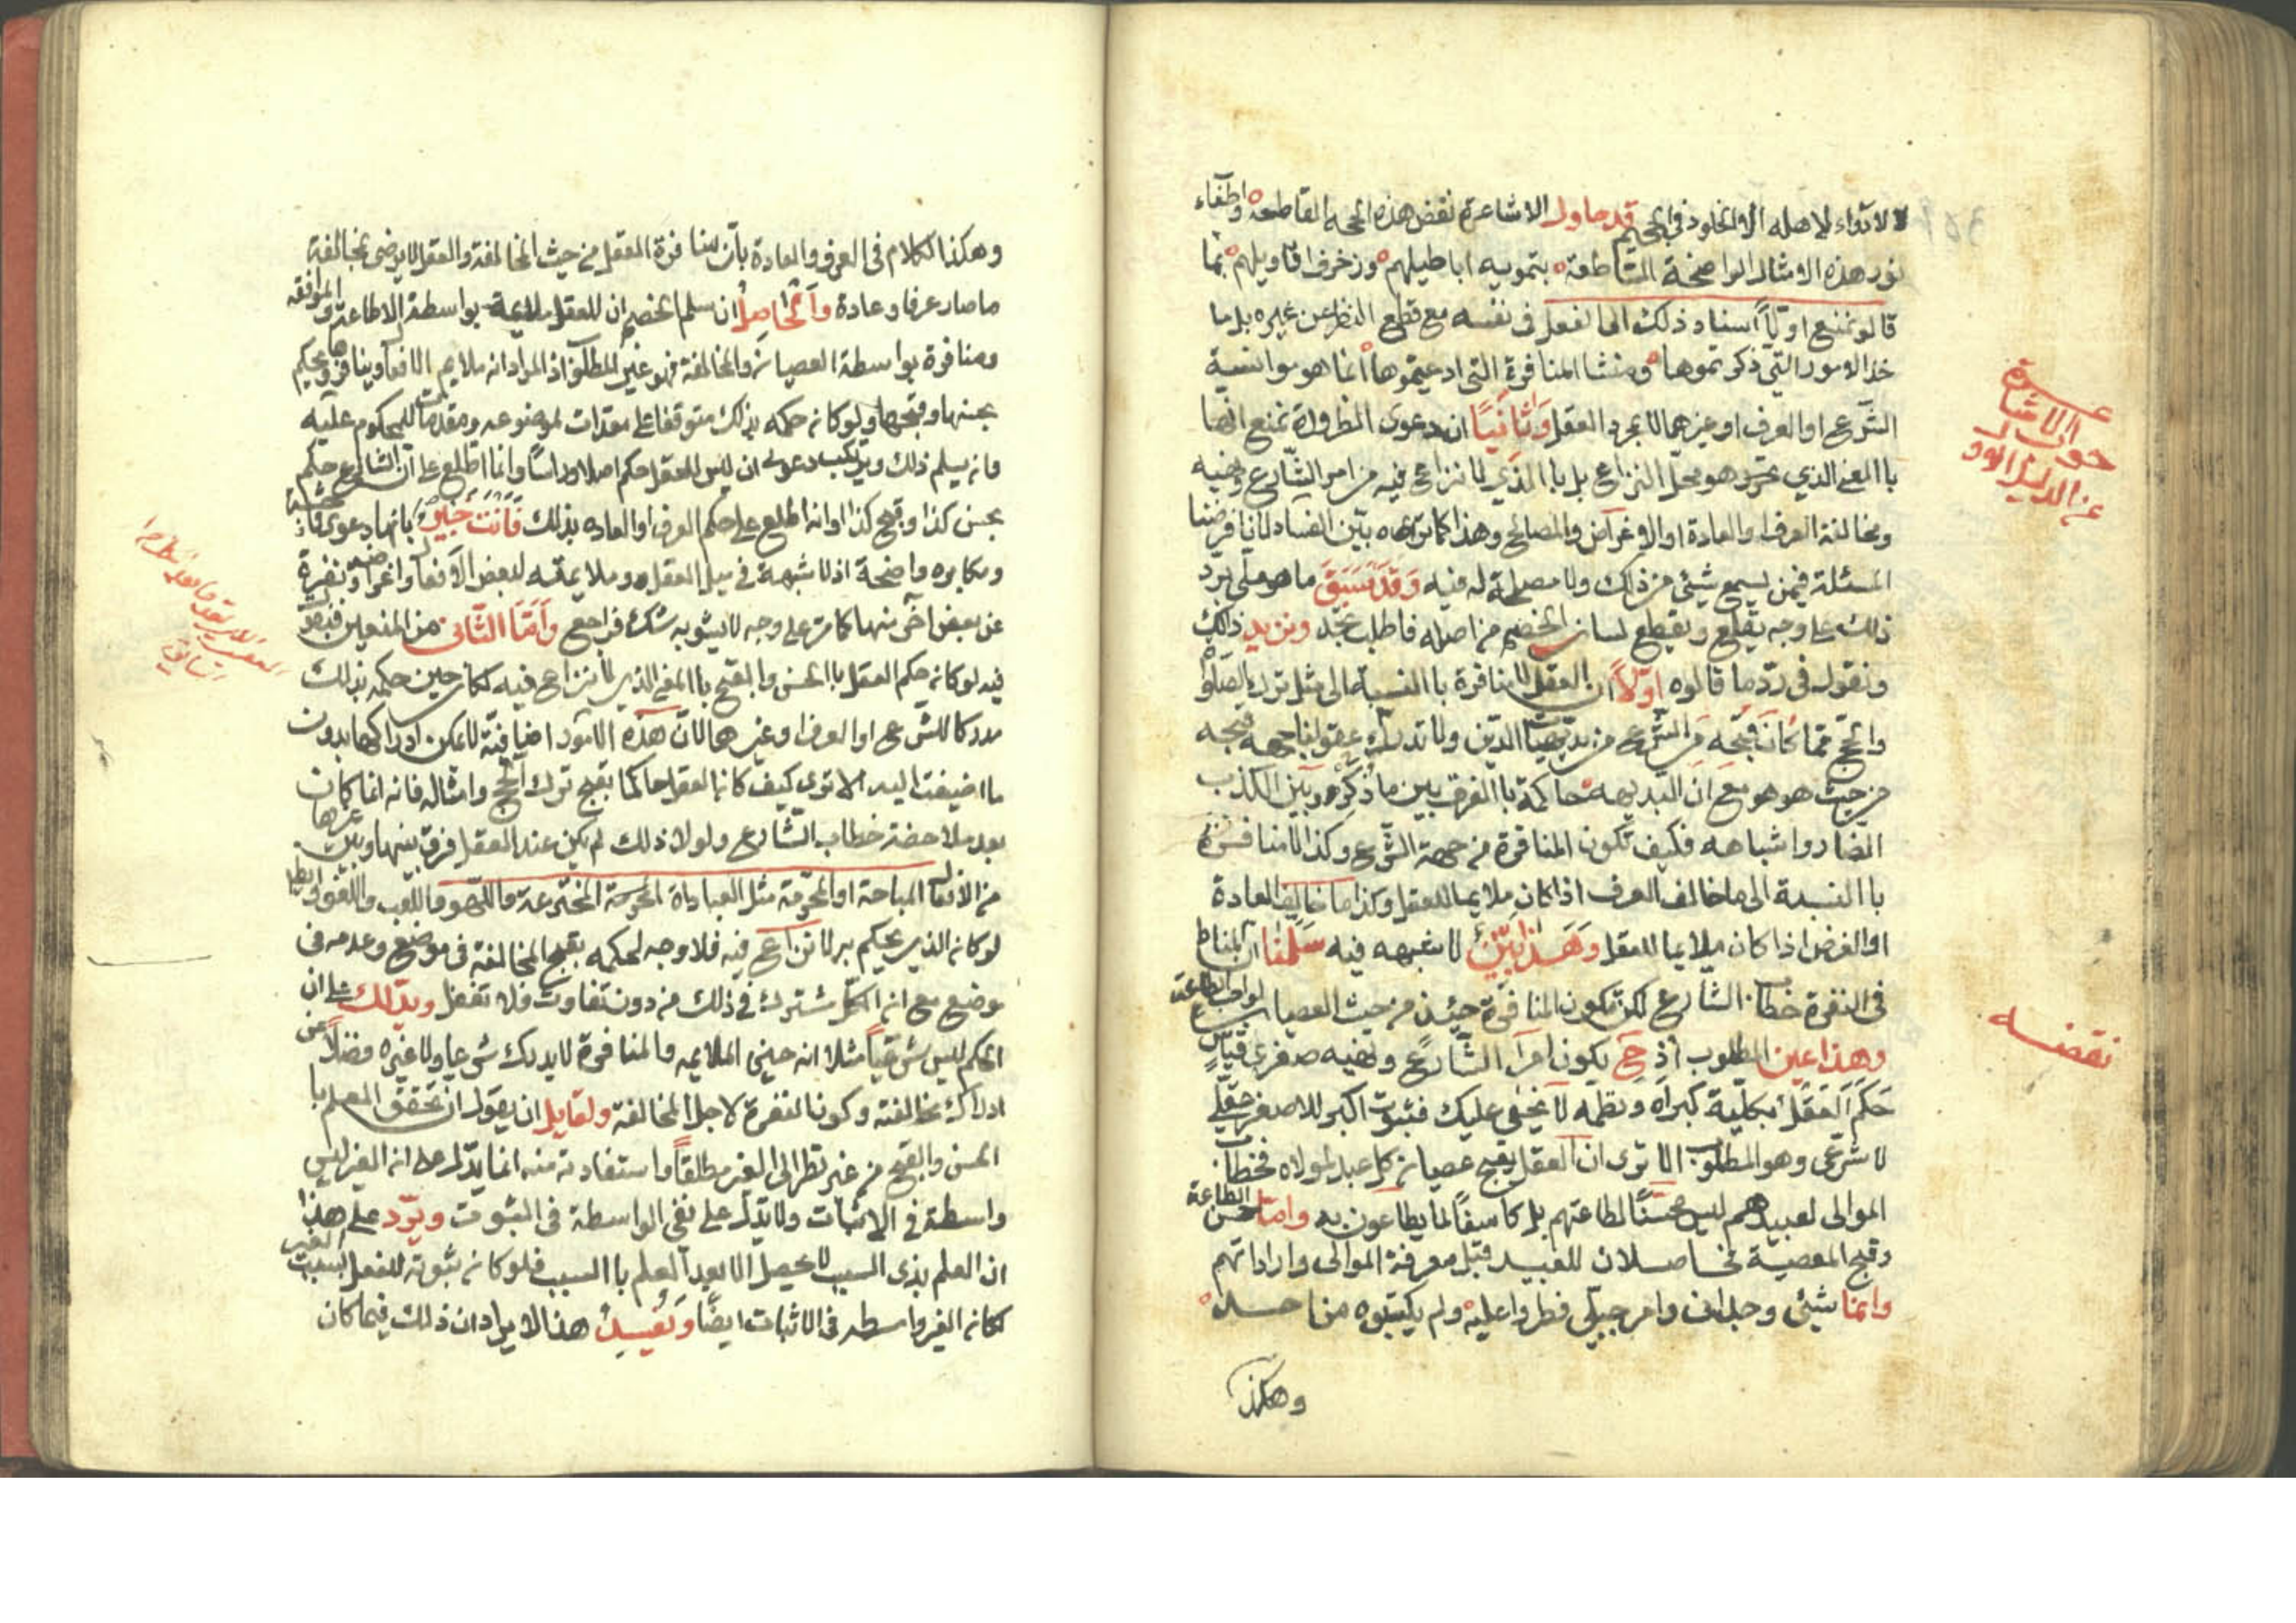 لا دواء لاصله الا الخلود في الجحيم قد حاول الاشاعرة نقض هذه الحجه القاطعه واطفاء
نور هذه الامثال الواضحة الساطعة بتمويه اباطيلهم وزخرف اقاويلهم بما
قالو نمنع اولاً اسناد ذلك الى الفعل في نفسه مع قطع النظر عن غيره بل ما
خذ الامور التي ذكرتموها ومنشا المنافرة التي ادعيتموها انما هو موانسة
الشرع او العرف او غيرهما لا بمجرد العقل وثانياً ان دعوى الضرورة نمنع انها
باالمعنى الذي تحرر هو محل النزاع بل باالذي لا نزاع فيه من امر الشارع ونهيه
ومخالفة العرف والعادة او الاغراض والمصالح وهذا كما تراه بين الفساد لانا فرضنا
المسئلة فيمن لم يسمع شيئ من ذلك ولا مصلحة له فيه وقد سبق ما هو ملي برد
ذلك على وجه يقلع ويقطع لسان الخصم من اصله فاطلب تجد ونزيد ذلك
ونقول في رد ما قالوه اولاً ان العقل لا منافرة باالنسبة له الى مثل ترك الصلوة
والحج مما كان قبحه من الشرع من بديهيات الدين ولا تدرك عقولنا جهة قبحه
من حيث هو هو مع ان البديهه حاكمة باالفرق بين ما ذكره وبين الكذب
الضار واشباهه فكيف تكون المنافرة من جهة الشرع وكذا لا منافرة
باالنسبة الى ما خالف العرف اذا كان ملايما للعقل وكذا ما خالف العادة
او الغرض اذا كان ملايما للعقل وهذا بيّن لا شبهه فيه سلمنا ان المناط
في النفرة خطاب الشارع لكن تكون المنافرة حينئذ من حيث العصيان لواجب الطاعة
وهذا عين المطلوب اذ ح يكون امر الشارع ونهيه صغرى قياس
حكم العقل بكلية كبراه ونظمه لا يخفى عليك فثبوت اكبر للاصغر عقلي
لا شرعي وهو المطلوب الا ترى ان العقل يقبح عصيان كل عبد لمولاه فخطاب
الموالى لعبيدهم ليس محسناً لطاعتهم بل كاشفاً لما يطاعون به واما حسن الطاعة
وقبح المعصية فحاصلان للعبيد قبل معرفة الموالى واراداتهم
وانما شيئ وجداني وامر جبلي فطروا عليه ولم يكتسبوه من احد
وهكذا
جواب الاشاعرة
عن الدليل الاول
نقضه
وهكذا الكلام في العرف والعادة بان منافرة العقل من حيث المخالفة والعقل لا يرضى بمخالفة
ما صار عرفا وعادة والحاصل ان سلم الخصم ان للعقل ملايمة بواسطة الاطاعة والموافقه
ومنافرة بواسطة العصيان والمخالفة فهو عين المطلوب اذ المراد انه ملايم الافعال وينافرها ويحكم
بحسنها وقبحها ولو كان حكمه بذلك متوقفا على مقدمات لموضوعه ومقدمات للمحكوم عليه
فانه يسلم ذلك ويرتكب دعوى ان ليس للعقل حكم اصلا وراساً وانما اطلع على ان الشارع حكم
بحسن كذا وقبح كذا او انه اطلع على حكم العرف او العاده بذلك فانت خبير بانها دعوى فاحشة
ومكابره واضحة اذ لا شبهة في ميل العقل وملايمته لبعض الافعال واغراضه ونفرة
عن بعض اخر منها كما مر على وجه لا يشوبه شك فراجع واما الثاني من المنعين فيرد
فيه لو كان حكم العقل باالحسن والقبح باالمعنى الذي لا نزاع فيه لكان حين حكمه بذلك
مدركا للشرع او العرف او غيرهما لان هذه الامور اضافية لا يمكن ادراكها بدون
ما اضيفت اليه الا ترى كيف كان العقل حاكما بقبح ترك الحج وامثاله فانه انما كان
بعد ملاحضة خطاب الشارع ولولا ذلك لم يكن عند العقل فرق بينها وبين غيرها
من الافعال المباحة او المحرمة مثل العباداة المحرمة المخترعة واللهو واللعب واللغو وايضا
لو كان الذي يحكم به لا نزاع فيه فلا وجه لحكمه بقبح المخالفة في موضع وعدمه في
موضع مع ان الكل مشترك في ذلك من دون تفاوت فلا تغفل ويدلك على ان
الحكم ليس شرعياً مثلا انه حين الملايمه والمنافرة لا يدرك شرعا ولا غيره فضلاً عن
ادراك مخالفته وكون النفرة لاجل المخالفة ولقايل ان يقول ان تحقق العلم با
الحسن والقبح من غير نظر الى الغير مطلقاً واستفادته منه انما يدل على انه الغير ليس
واسطة في الاثبات ولا يدل على نفي الواسطة في الثبوت ويرد على هذا
ان العلم بذى السبب لا يحصل الا بعد العلم باالسبب فلو كان ثبوته للفعل بسبب الغير
لكان الغير واسطه في الاثبات ايضاً ويفسد هذا الايراد ان ذلك فيما كان